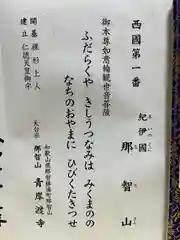 西國第一番
紀伊國
きいのくに
那智山
なちさん
御本尊如意輪観世音菩薩
ふだらくや きしうつなみは みくまのの
なちのおやまに ひびくたきつせ
天台宗
和歌山県那智勝浦町那智山
那智山 青岸渡寺
開基 裸形上人
建立 仁徳天皇御宇